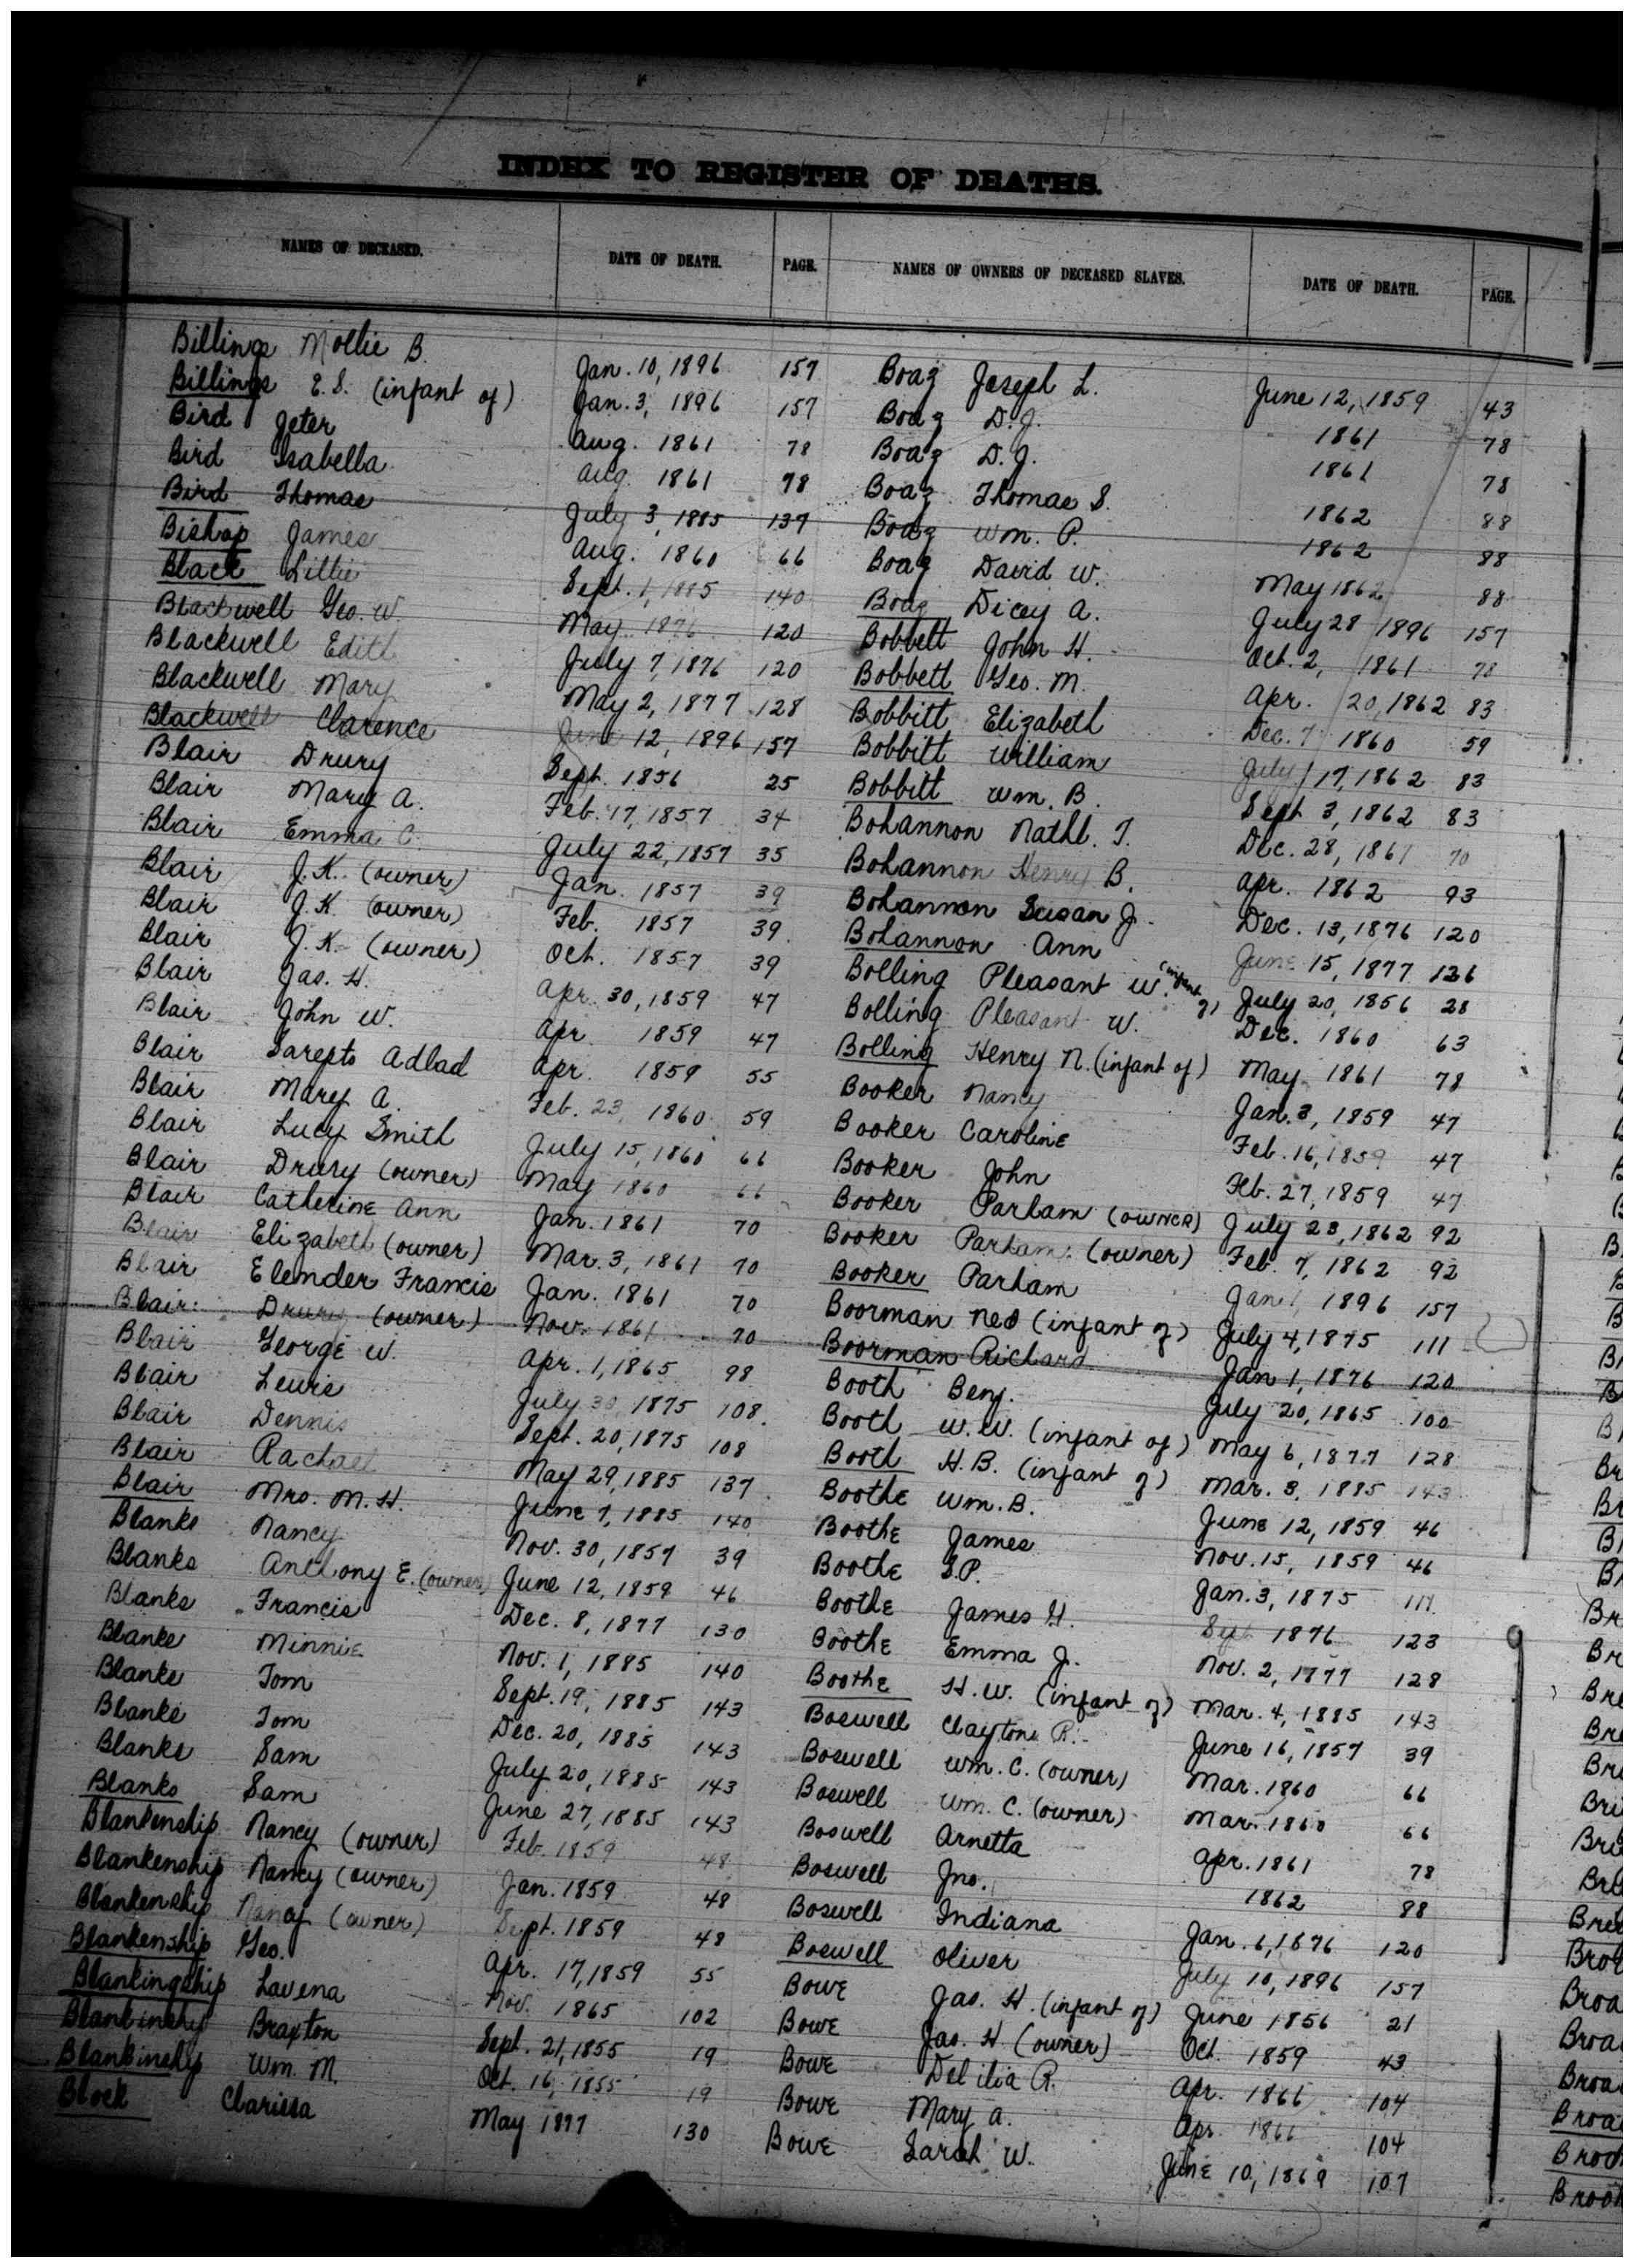 INDEX TO REGISTER OF DEATHS.
NAMES OF DECEASED. DATE OF DEATH. PAGE. NAMES OF OWNERS OF DECEASED SLAVES. DATE OF DEATH. PAGE.
Billings Mollie B. Jan. 10, 1896 157
Billings E.S. (infant of) Jan. 3, 1896 157
Bird Jeter Aug. 1861 78
Bird Isabella Aug. 1861 78
Bird Thomas July 3, 1885 137
Bishop James Aug. 1860 66
Black Lillie Sept. 1, 1885 140
Blackwell Geo. W. May 1876 120
Blackwell Edith July 7, 1876 120
Blackwell Mary May 2, 1877 128
Blackwell Clarence June 12, 1896 157
Blair Drury Sept. 1856 25
Blair Mary A. Feb. 17, 1857 34
Blair Emma C. July 22, 1857 35
Blair J.K. (owner) Jan. 1857 39
Blair J.K. (owner) Feb. 1857 39
Blair J.K. (owner) Oct. 1857 39
Blair Jas. H. Apr. 30, 1859 47
Blair John W. Apr. 1859 47
Blair Sarepto Adlad Apr. 1859 55
Blair Mary A. Feb. 23, 1860 59
Blair Lucy Smith July 15, 1860 66
Blair Drury (owner) May 1860 66
Blair Catherine Ann Jan. 1861 70
Blair Elizabeth (owner) Mar. 3, 1861 70
Blair Elender Francis Jan. 1861 70
Blair Drury (owner) Nov. 1861 70
Blair George W. Apr. 1, 1865 98
Blair Lewis July 30, 1875 108
Blair Dennis Sept. 20, 1875 108
Blair Rachael May 29, 1885 137
Blair Mrs. M.H. June 7, 1885 140
Blanks Nancy Nov. 30, 1857 39
Blanks Anthony E. (owner) June 12, 1859 46
Blanks Francis Dec. 8, 1877 130
Blanks Minnie Nov. 1, 1885 140
Blanks Tom Sept. 19, 1885 143
Blanks Tom Dec. 20, 1885 143
Blanks Sam July 20, 1885 143
Blanks Sam June 27, 1885 143
Blankenship Nancy (owner) Feb. 1859 48
Blankenship Nancy (owner) Jan. 1859 48
Blankenship Nancy (owner) Sept. 1859 48
Blankenship Geo. Apr. 17, 1859 55
Blankingship Lavena Nov. 1865 102
Blankinship Braxton Sept. 21, 1855 19
Blankinship Wm. M. Oct. 16, 1855 19
Block Clarissa May 1877 130
Boaz Joseph L. June 12, 1859 43
Boaz D.J. 1861 78
Boaz D.J. 1861 78
Boaz Thomas S. 1862 88
Boaz Wm. P. 1862 88
Boaz David W. May 1862 88
Boaz Dicey A. July 28 1896 157
Bobbett John H. Oct. 2, 1861 78
Bobbett Geo. M. Apr. 20, 1862 83
Bobbitt Elizabeth Dec. 7 1860 59
Bobbitt William July 17, 1862 83
Bobbitt Wm. B. Sept 3, 1862 83
Bohannon Nathl. T. Dec. 28, 1861 70
Bohannon Henry B. Apr. 1862 93
Bohannon Susan J. Dec. 13, 1876 120
Bohannon Ann June 15, 1877 126
Bolling Pleasant W. (infant of) July 20, 1856 28
Bolling Pleasant W. Dec. 1860 63
Bolling Henry N. (infant of) May 1861 78
Booker Nancy Jan. 3, 1859 47
Booker Caroline Feb. 16, 1859 47
Booker John Feb. 27, 1859 47
Booker Parham (owner) July 23, 1862 92
Booker Parham (owner) Feb. 7, 1862 92
Booker Parham Jan 1, 1896 157
Boorman Ned (infant of) July 4, 1875 111
Boorman Richard Jan 1, 1876 120
Booth Benj. July 20, 1865 100
Booth W.W. (infant of) May 6, 1877 128
Booth H.B. (infant of) Mar. 3, 1885 143
Boothe Wm. B. June 12, 1859 46
Boothe James Nov. 15, 1859 46
Boothe S.P. Jan. 3, 1875 111
Boothe James H. Sept 1876 123
Boothe Emma J. Nov. 2, 1877 128
Boothe H.W. (infant of) Mar. 4, 1885 143
Boswell Clayton R. June 16, 1857 39
Boswell Wm. C. (owner) Mar. 1860 66
Boswell Wm. C. (owner) Mar. 1860 66
Boswell Arnetta Apr. 1861 78
Boswell Jno. 1862 88
Boswell Indiana Jan. 6, 1876 120
Boswell Oliver July 10, 1896 157
Bowe Jas. H. (infant of) June 1856 21
Bowe Jas. H (owner) Oct. 1859 43
Bowe Delilia R. Apr. 1866 104
Bowe Mary A. Apr. 1866 104
Bowe Sarah W. June 10, 1869 107